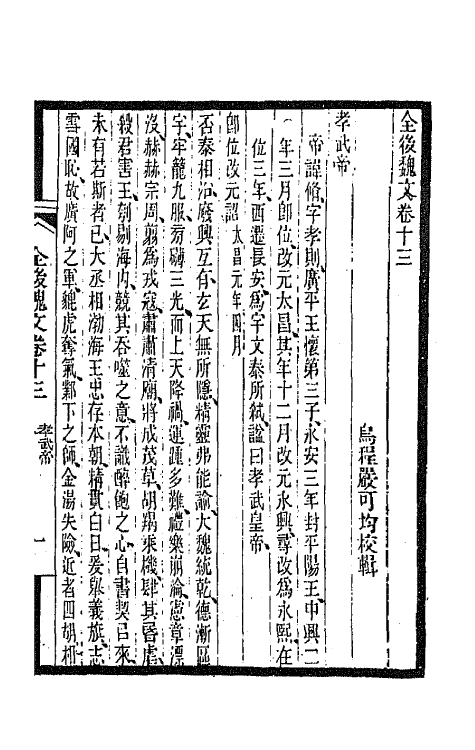 全後魏文卷十三
烏程嚴可均校輯
孝武帝
帝諱脩字孝則廣平王懷第三子永安三年封平陽王中興二
年三月卽位改元太昌其年十二月改元永興尋改爲永熙在
位三年西遷長安爲宇文泰所弑諡曰孝武皇帝
卽位改元詔太昌元年四月
否泰相㳂廢興互有玄天無所隱精靈弗能諭大魏統乾德漸區
宇牢籠九服旁礴三光而上天降禍運踵多難禮樂崩淪憲章漂
沒赫赫宗周翦爲戎寇肅肅清廟將成茂草胡羯乘機肆其昬虐
殺君害王刳剔海內競其吞噬之意不識醉飽之心自書契已來
未有若斯者已大丞相渤海王忠存本朝精貫白日爰舉義旗志
雪國恥故廣阿之軍貔虎奪氣鄴下之師金湯失險近者四胡相
全後魏文卷十三
孝武帝
一